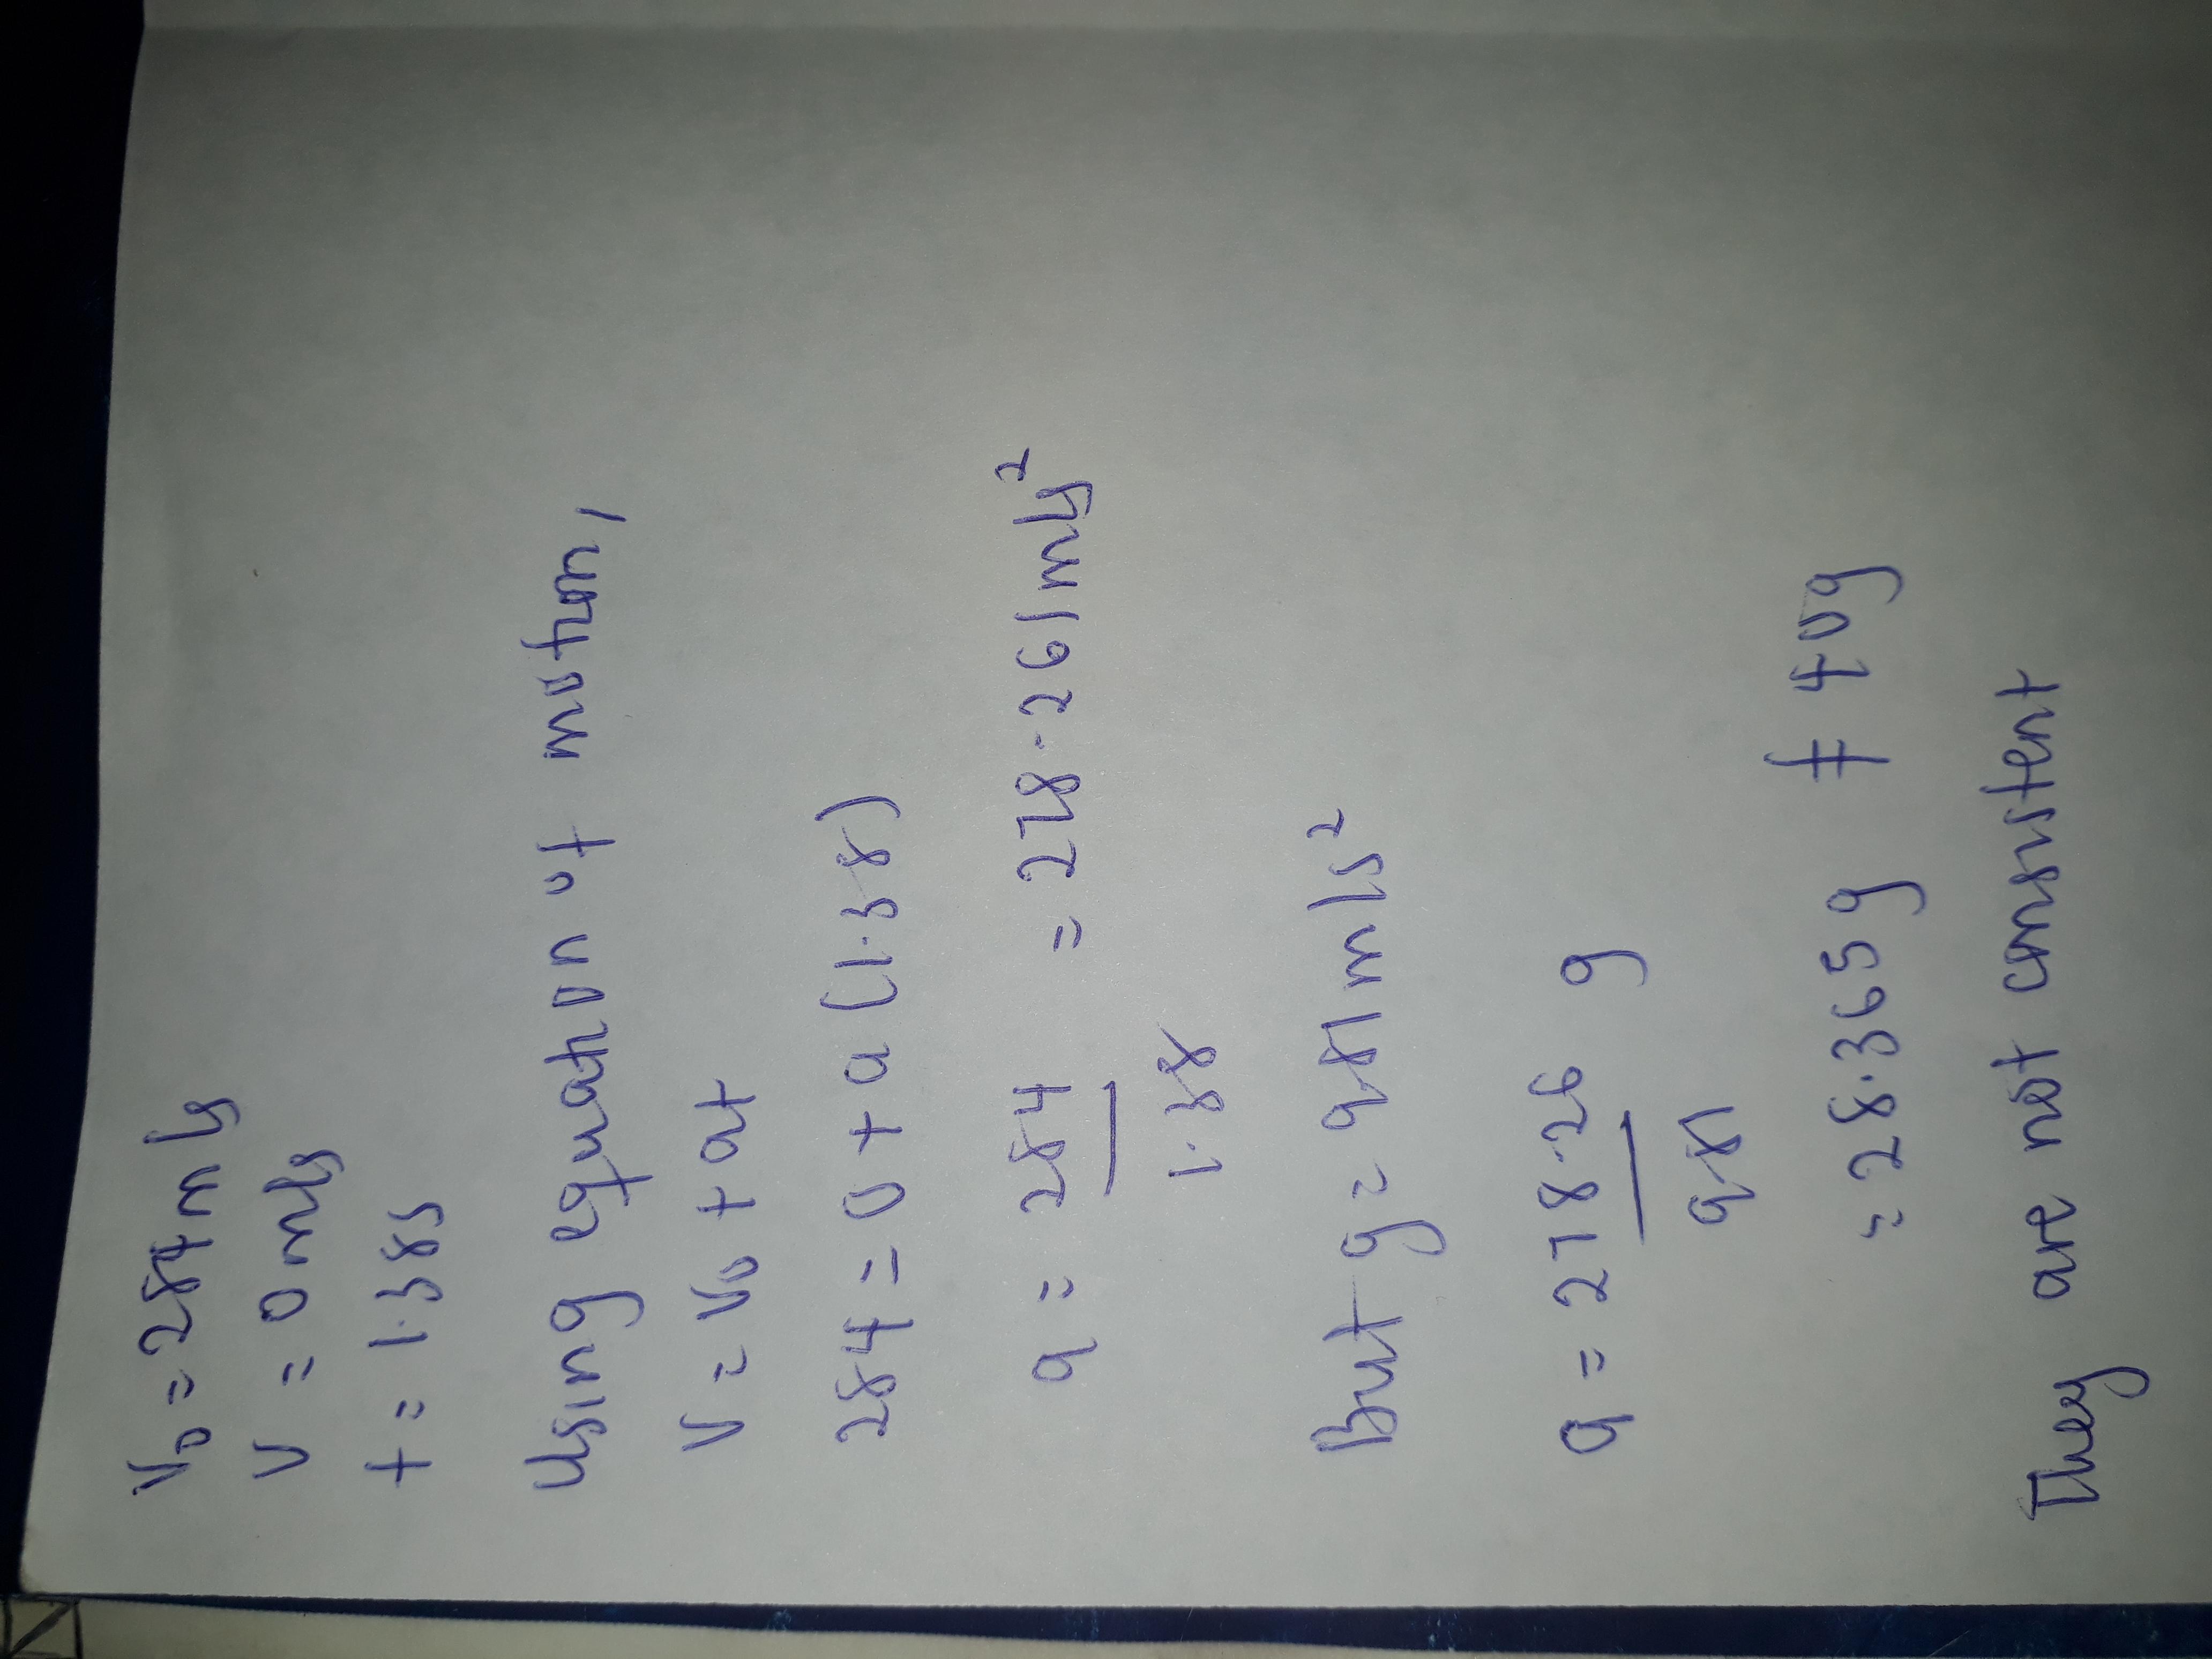 V₀ = 284 m/s
V = 0 m/s
t = 1.38s
Using equation of motion,
V = V₀ + at
284 = 0 + a (1.38)
a = 284 = 278.261 m/s²
1.38
But g = 9.81 m/s²
a = 278.26 g
9.81
= 28.365 g ≠ 40g
They are not consistent